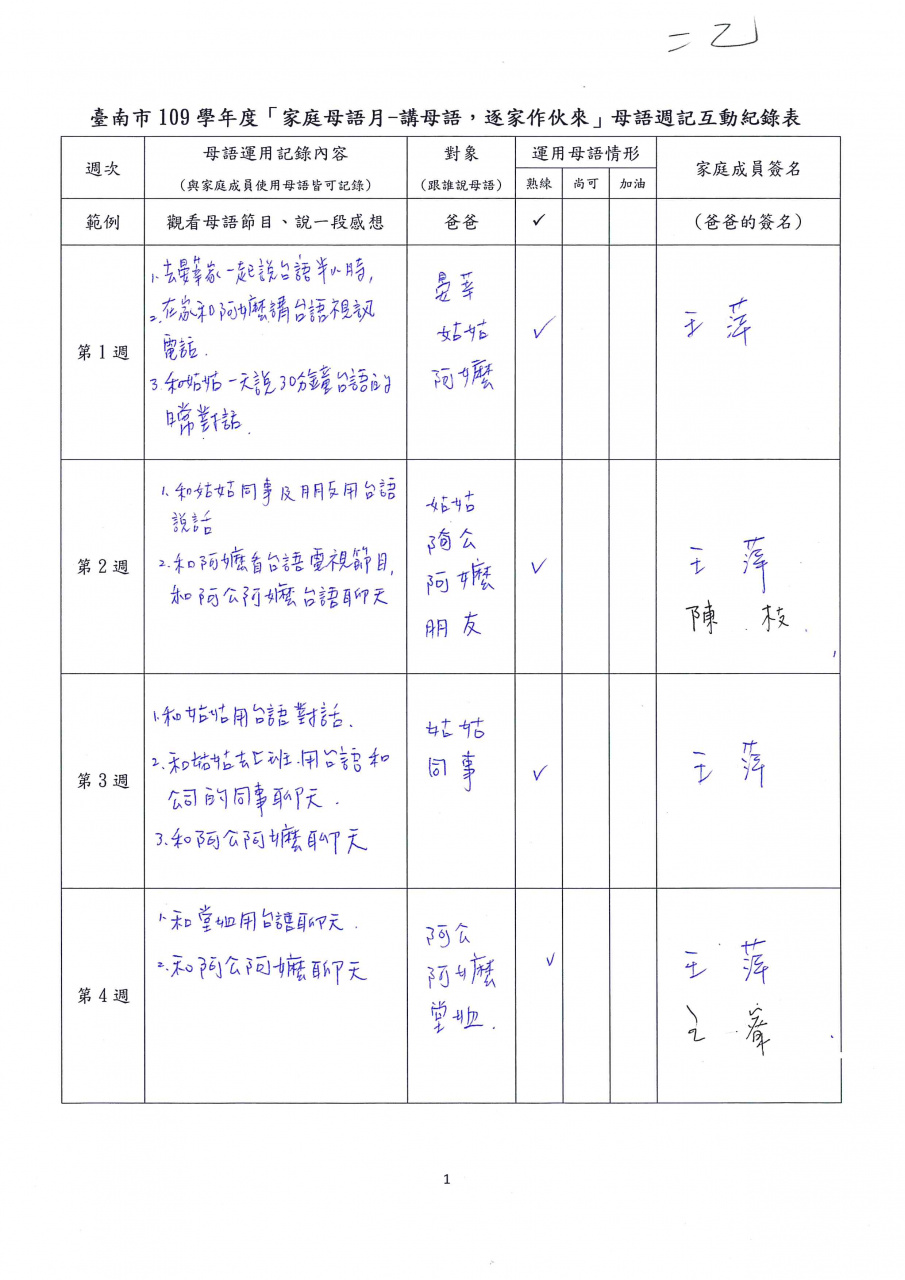 二乙
臺南市 109 學年度「家庭母語月-講母語，逐家作伙來」母語週記互動紀錄表
週次
母語運用記錄內容
（與家庭成員使用母語皆可記錄）
對象
（跟誰說母語）
運用母語情形
熟練 尚可 加油
家庭成員簽名
範例 觀看母語節目、說一段感想 爸爸 ✓ （爸爸的簽名）
第 1 週
1.去晏莘家一起說台語半小時,
2.在家和阿嬤講台語視訊
電話.
3.和姑姑一天說30分鐘台語的
日常對話.
晏莘
姑姑
阿嬤
✓
王 萍
第 2 週
1.和姑姑同事及朋友用台語
說話
2.和阿嬤看台語電視節目,
和阿公阿嬤台語聊天
姑姑
阿公
阿嬤
朋友
✓
王 萍
陳 枝
第 3 週
1.和姑姑用台語對話.
2.和姑姑去上班.用台語和
公司的同事聊天.
3.和阿公阿嬤聊天
姑姑
同事
✓
王 萍
第 4 週
1.和堂姐用台語聊天.
2.和阿公阿嬤聊天
阿公
阿嬤
堂姐.
✓
王 萍
1